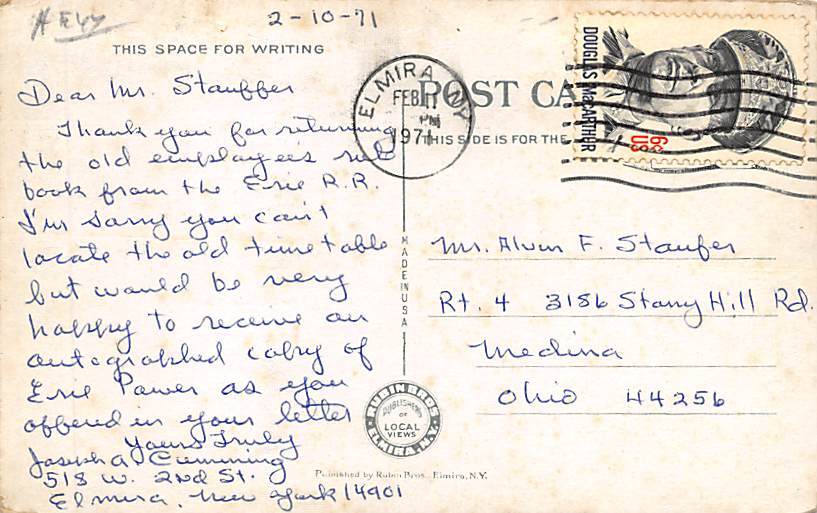 2-10-71
THIS SPACE FOR WRITING
Dear Mr. Stauffer
Thank you for returning
the old employees rule
book from the Erie R.R.
I'm sorry you can't
locate the old time table
but would be very
happy to receive an
autographed copy of
Erie Power as you
offered in your letter
Yours Truly
Joseph A. Cumming
518 W. 2nd St.
Elmira, New York 14901
ELMIRA NY
FEB 11
PM
1971
POST CA
THIS SIDE IS FOR THE
DOUGLAS MacARTHUR
6c US
MADE IN USA
Mr. Alvin F. Staufer
Rt. 4 3186 Stony Hill Rd.
Medina
Ohio 44256
RUBIN BROS.
PUBLISHERS
OF
LOCAL
VIEWS
ELMIRA, N.Y.
Published by Rubin Bros. Elmira, N.Y.